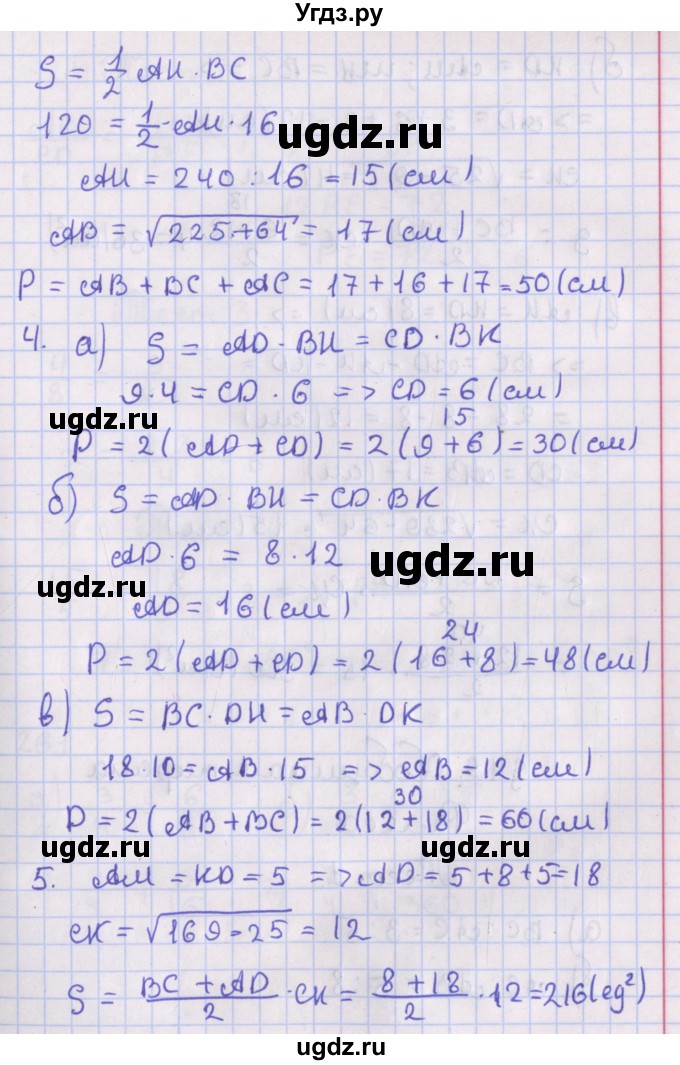 Угдз.ру
S = 1/2 AH · BC
120 = 1/2 · AH · 16
ugdz.ru
AH = 240 : 16 = 15 (см)
AB = √(225 + 64) = 17 (см)
P = AB + BC + AC = 17 + 16 + 17 = 50 (см)
4. а) S = AD · BH = CD · BK
9 · 4 = CD · 6 => CD = 6 (см)
ugdz.ru ugdz.ru
15
P = 2 (AD + CD) = 2 (9 + 6) = 30 (см)
б) S = AD · BH = CD · BK
AD · 6 = 8 · 12
ugdz.ru
ugdz.ru
AD = 16 (см)
24
P = 2 (AD + CD) = 2 (16 + 8) = 48 (см)
в) S = BC · DH = AB · DK
18 · 10 = AB · 15 => AB = 12 (см)
30
P = 2 (AB + BC) = 2 (12 + 18) = 60 (см)
ugdz.ru ugdz.ru
5. AM = KD = 5 => AD = 5 + 8 + 5 = 18
CK = √(169 - 25) = 12
S = (BC + AD)/2 · CK = (8 + 18)/2 · 12 = 216 (ед²)
ugdz.ru